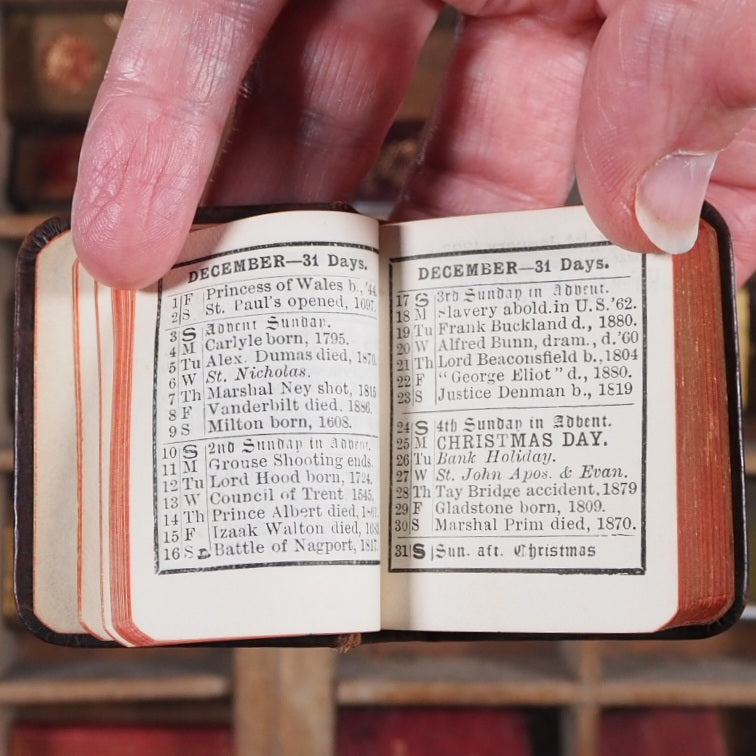 DECEMBER—31 Days.
1 F Princess of Wales b., '44
2 S St. Paul's opened, 1697
3 S Advent Sunday.
4 M Carlyle born, 1795.
5 Tu Alex. Dumas died, 1870
6 W St. Nicholas.
7 Th Marshal Ney shot, 1815
8 F Vanderbilt died. 1886.
9 S Milton born, 1608.
10 S 2nd Sunday in Advent.
11 M Grouse Shooting ends.
12 Tu Lord Hood born, 1724.
13 W Council of Trent 1545.
14 Th Prince Albert died,
15 F Izaak Walton died,
16 S Battle of Nagport, 1817
DECEMBER—31 Days.
17 S 3rd Sunday in Advent.
18 M Slavery abold. in U.S.'62.
19 Tu Frank Buckland d., 1880.
20 W Alfred Bunn, dram., d.'60
21 Th Lord Beaconsfield b., 1804
22 F "George Eliot" d., 1880.
23 S Justice Denman b., 1819
24 S 4th Sunday in Advent.
25 M CHRISTMAS DAY.
26 Tu Bank Holiday.
27 W St. John Apos. & Evan.
28 Th Tay Bridge accident, 1879
29 F Gladstone born, 1809.
30 S Marshal Prim died, 1870.
31 S Sun. aft. Christmas